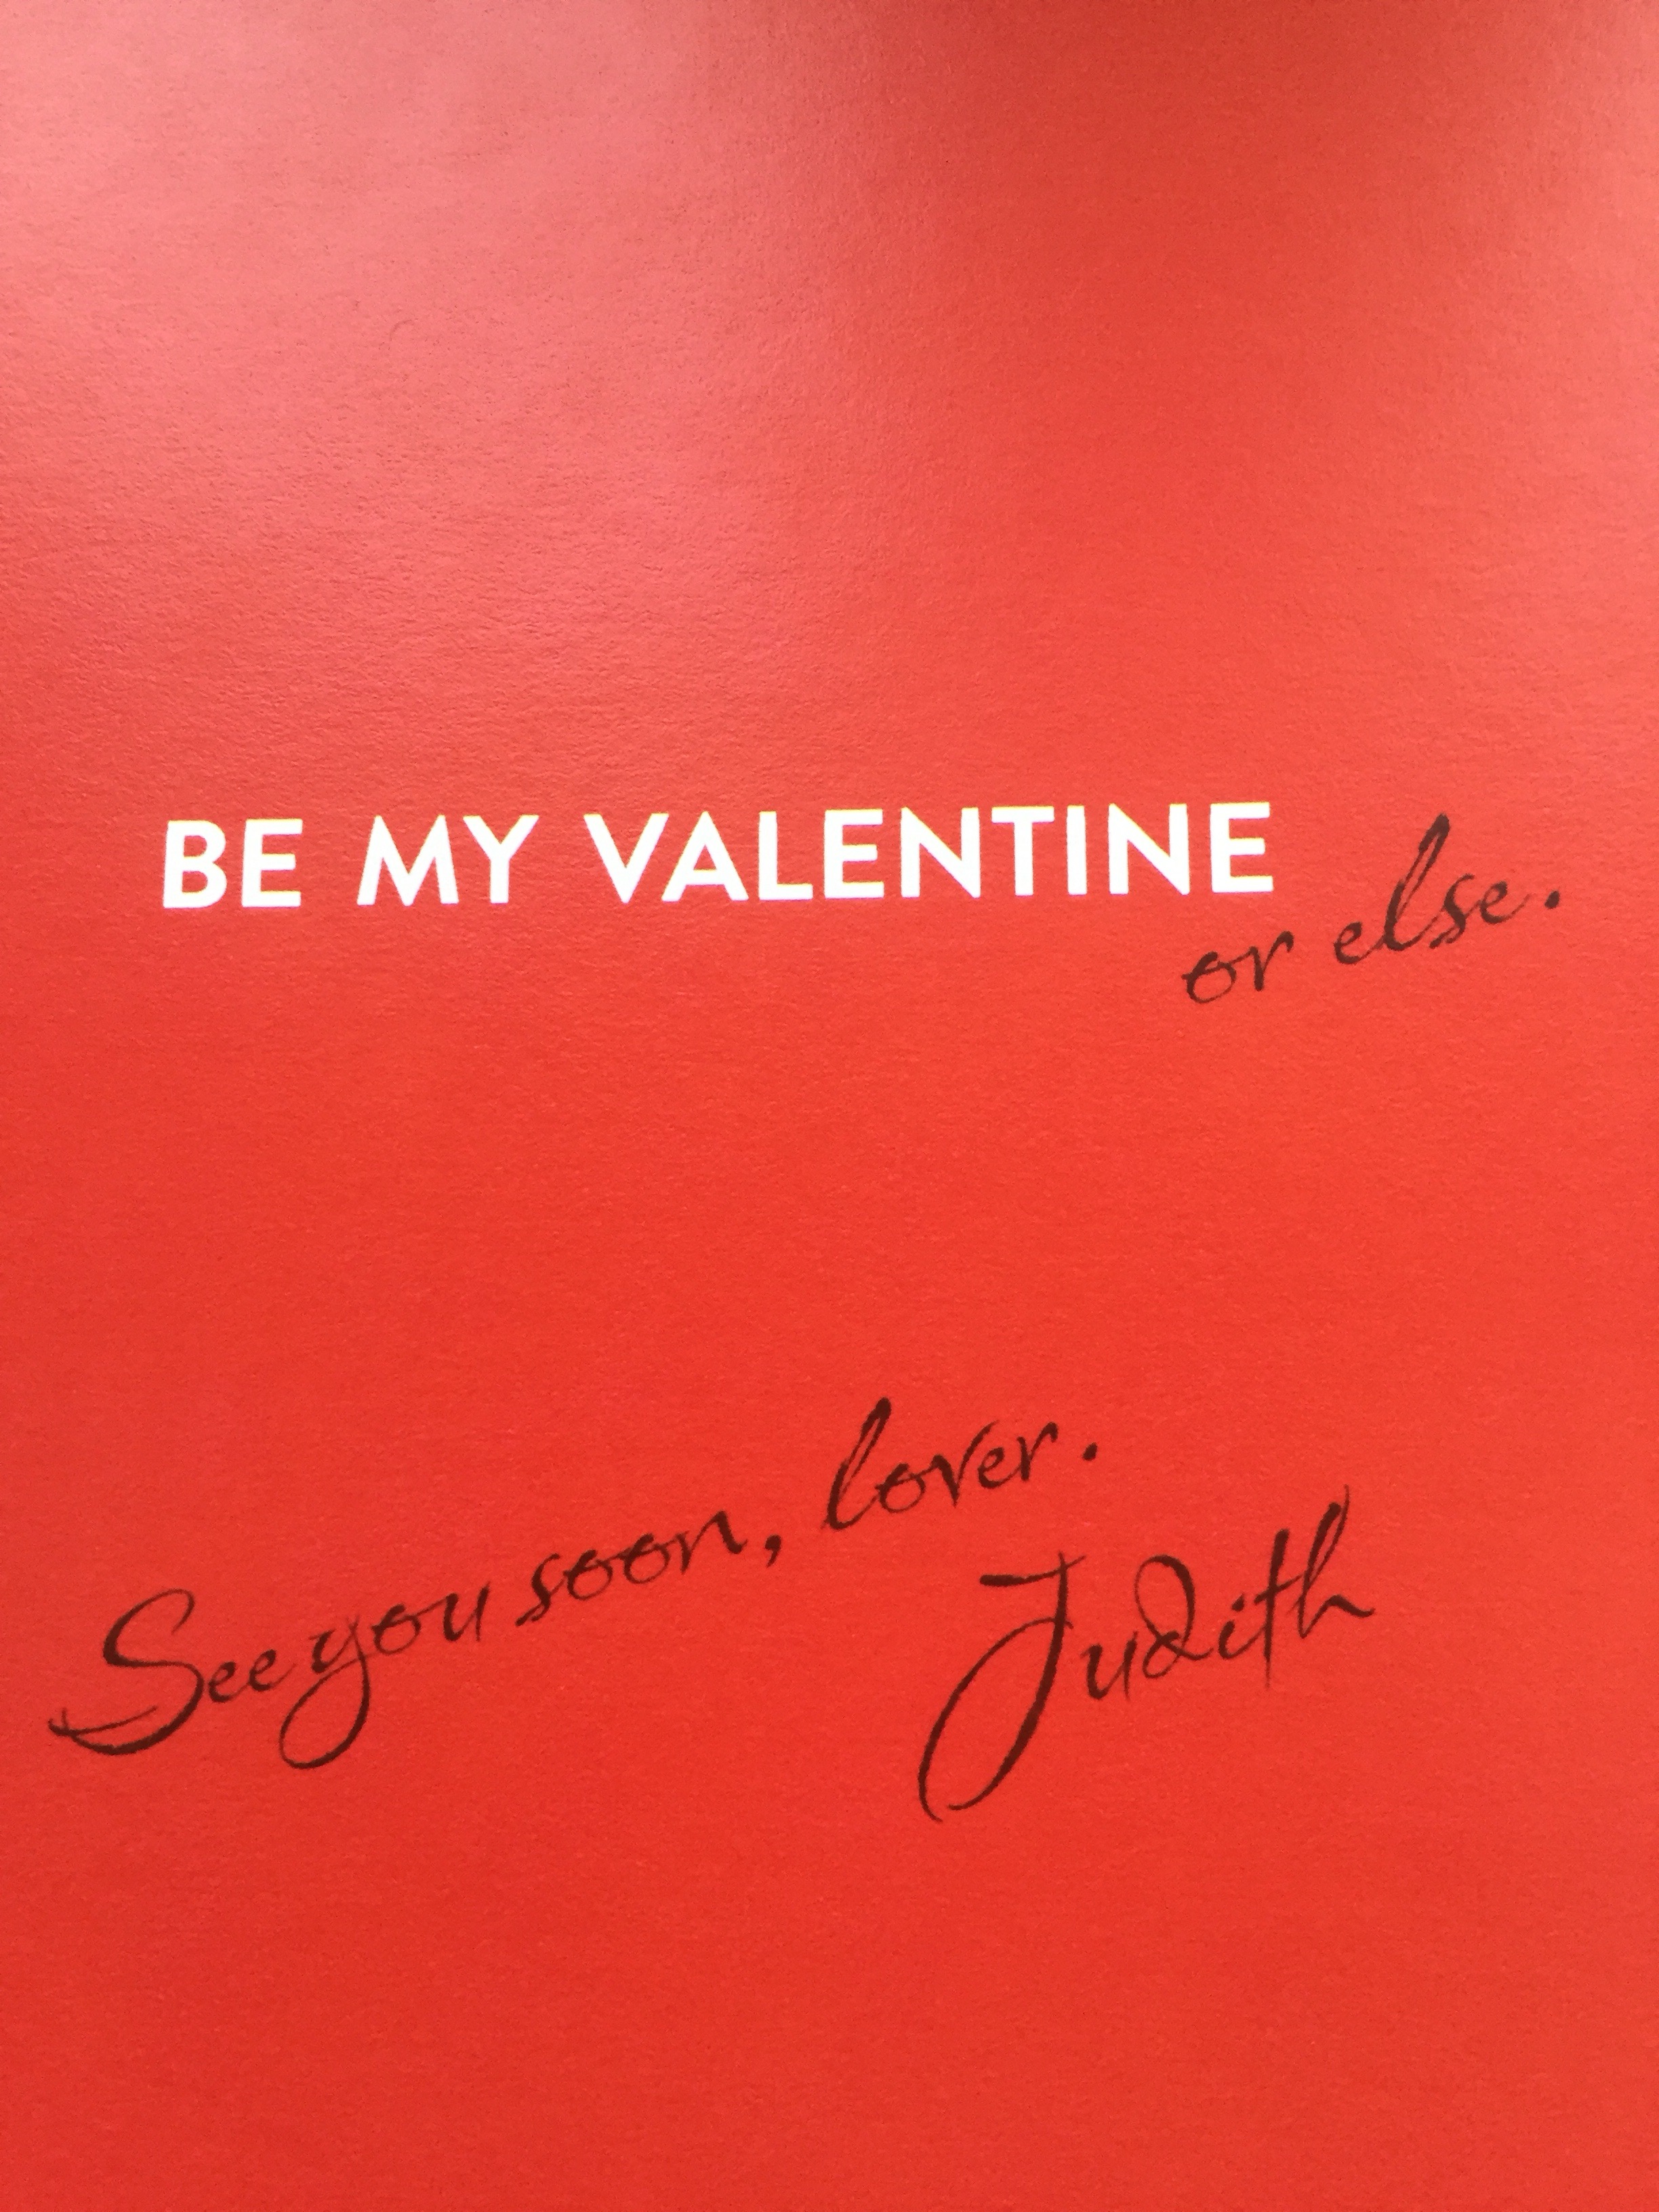 BE MY VALENTINE
or else.
See you soon, lover.
Judith